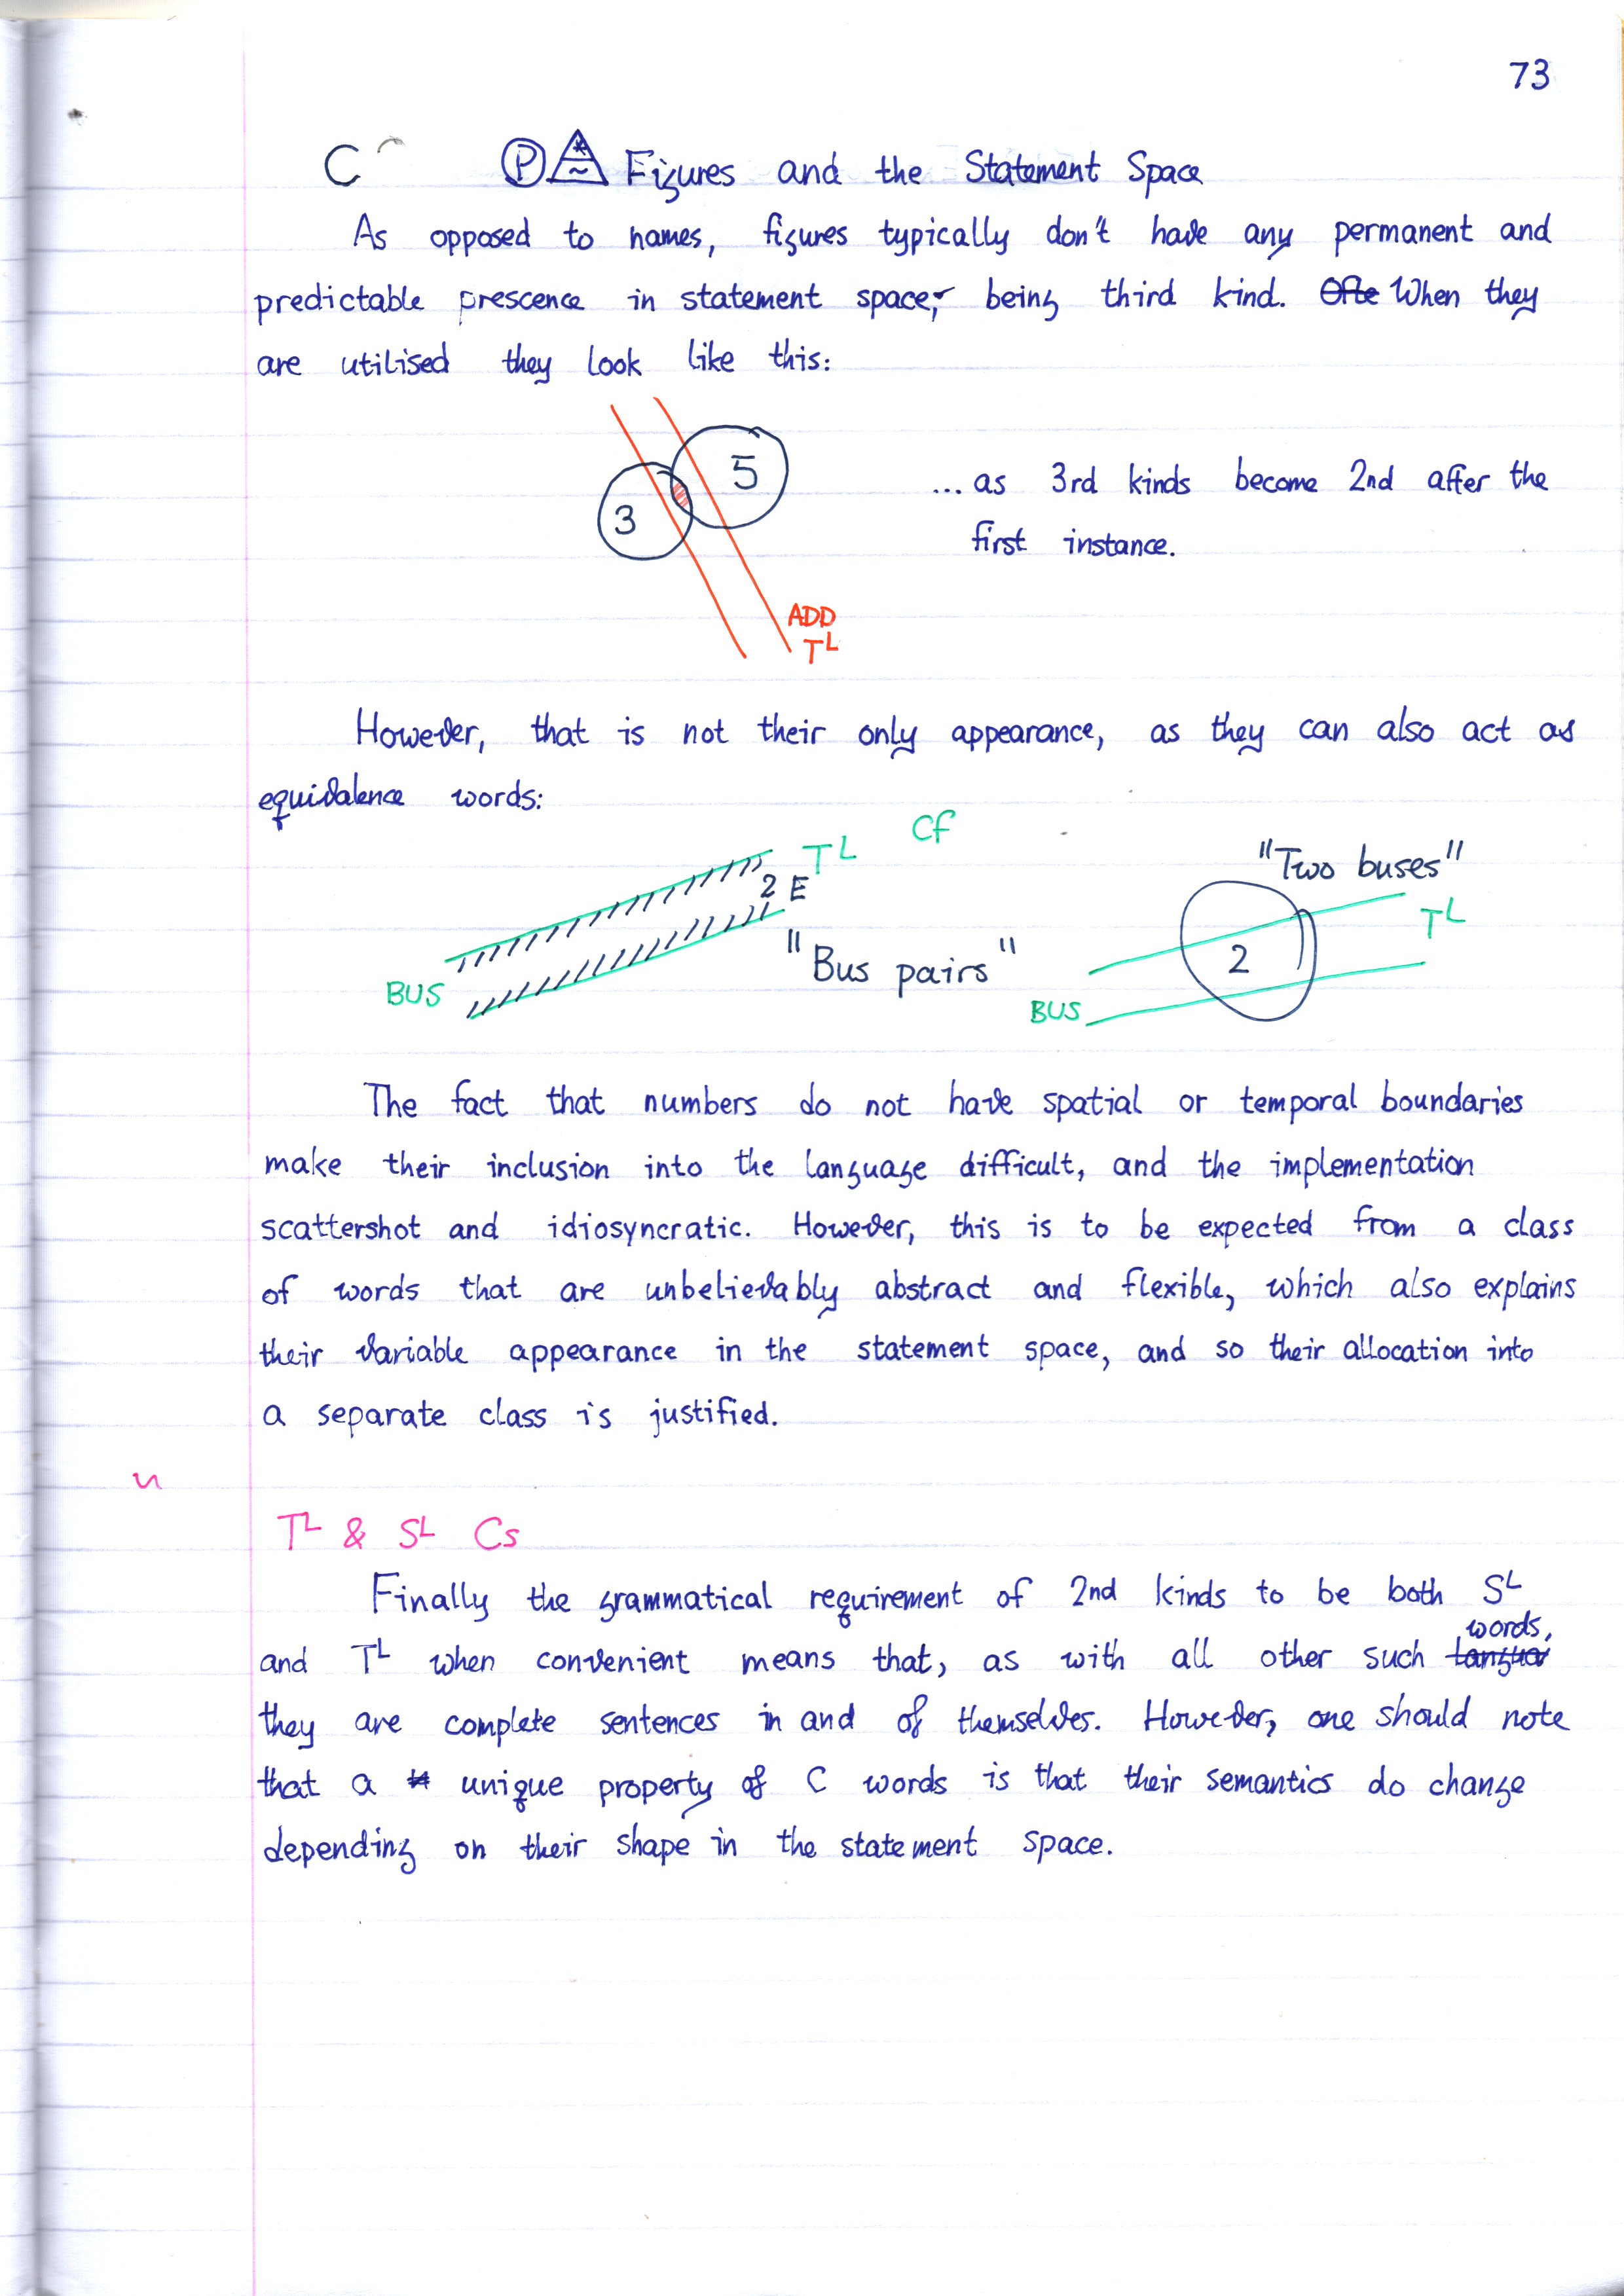 73
C P Figures and the Statement Space
As opposed to names, figures typically don't have any permanent and
predictable prescence in statement space, being third kind. Ofte When they
are utilised they look like this:
3 5
... as 3rd kinds become 2nd after the
first instance.
ADD
T^L
However, that is not their only appearance, as they can also act as
equivalence words:
BUS 2 E T^L Cf
"Bus pairs"
"Two buses"
BUS 2 T^L
The fact that numbers do not have spatial or temporal boundaries
make their inclusion into the language difficult, and the implementation
scattershot and idiosyncratic. However, this is to be expected from a class
of words that are unbelievably abstract and flexible, which also explains
their variable appearance in the statement space, and so their allocation into
a separate class is justified.
T^L & S^L Cs
Finally the grammatical requirement of 2nd kinds to be both S^L
and T^L when convenient means that, as with all other such words,
they are complete sentences in and of themselves. However, one should note
that a unique property of C words is that their semantics do change
depending on their shape in the statement space.